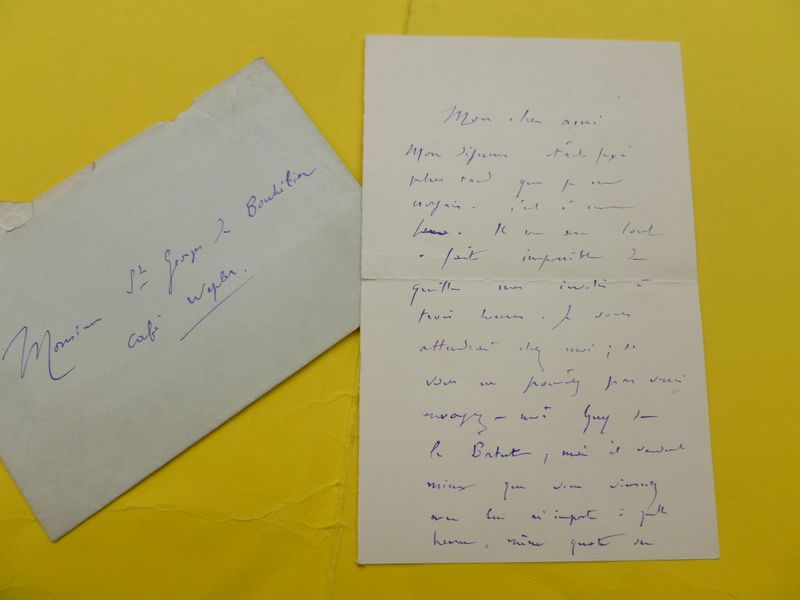 Monsieur St Georges de Bouhélier
café Wepler.
Mon cher ami
Mon déjeuner était fixé
plus tard que je ne
croyais. c'est à une
heure. Il me sera tout
à fait impossible de
quitter mes invités à
trois heures. Je vous
attendrai chez moi ; si
vous ne pouvez pas venir
envoyez-moi Guy de
la Batut, mais il vaudrait
mieux que vous veniez
avec lui n'importe à quelle
heure, même quatre ou